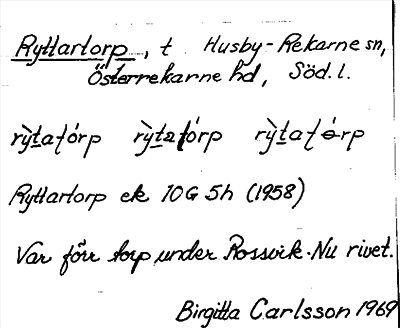 Ryttartorp, t Husby-Rekarne sn,
Österrekarne hd, Söd. l.
rỳtatórp rỳtatórp rỳtatórp
Ryttartorp ek 10G 5h (1958)
Var förr torp under Rossvik. Nu rivet.
Birgitta Carlsson 1969